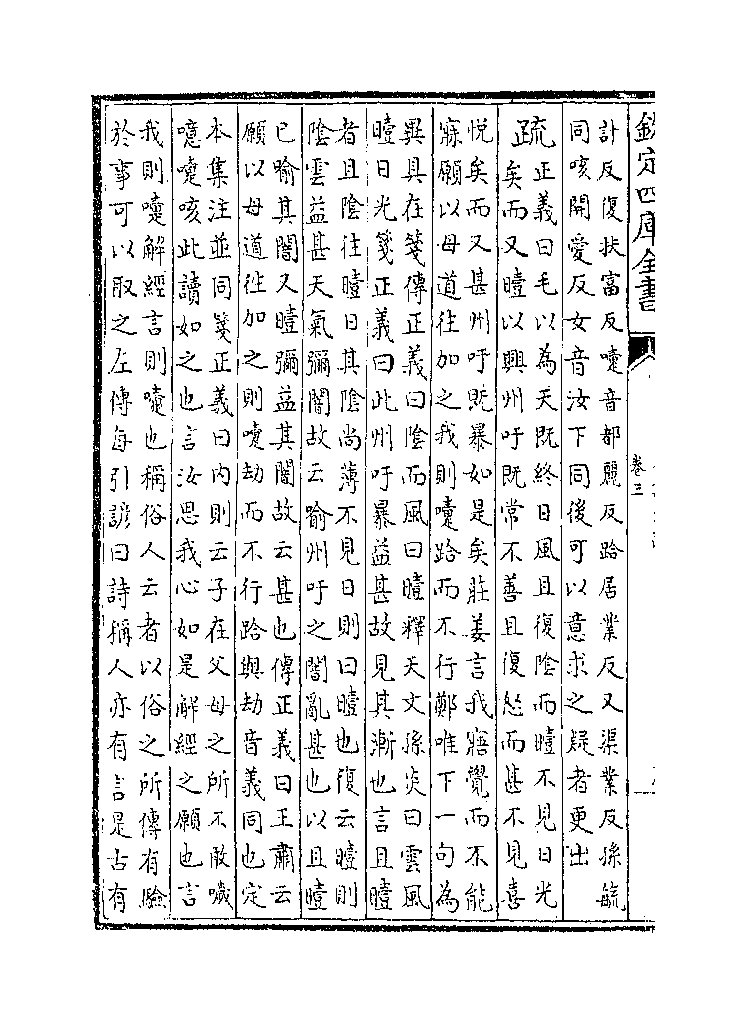 欽定四庫全書
卷三
計反復扶富反嚏音都麗反跲居業反又渠業反孫毓
同咳開愛反女音汝下同後可以意求之疑者更出
疏正義曰毛以為天既終日風且復陰而曀不見日光
矣而又曀以興州吁既常不善且復怒而甚不見喜
悅矣而又甚州吁既暴如是矣莊姜言我寤覺而不能
寐願以母道往加之我則嚏跲而不行鄭唯下一句為
異具在箋傳正義曰陰而風曰曀釋天文孫炎曰雲風
曀日光箋正義曰此州吁暴益甚故見其漸也言且曀
者且陰往曀日其陰尚薄不見日則曰曀也復云曀則
陰雲益甚天氣彌闇故云喻州吁之闇亂甚也以且曀
已喻其闇又曀彌益其闇故云甚也傳正義曰王肅云
願以母道往加之則嚏劫而不行跲與劫音義同也定
本集注並同箋正義曰內則云子在父母之所不敢噦
噫嚏咳此讀如之也言汝思我心如是解經之願也言
我則嚏解經言則嚏也稱俗人云者以俗之所傳有驗
於事可以取之左傳每引諺曰詩稱人亦有言是古有